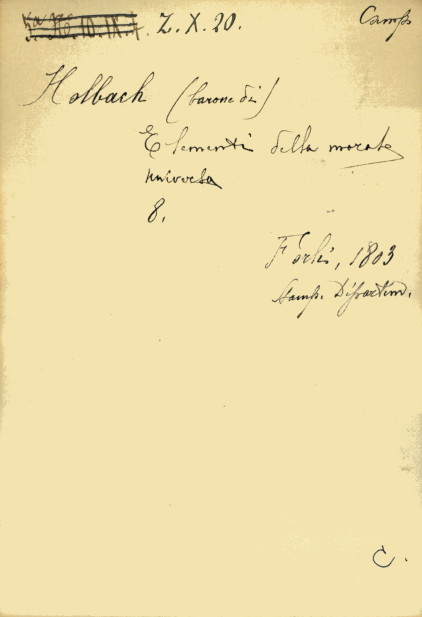 Z. X. 20.
Camp.
Holbach (barone di)
Elementi della morale
universa
8.
Forlì, 1803
Stamp. Dipartim.
C.